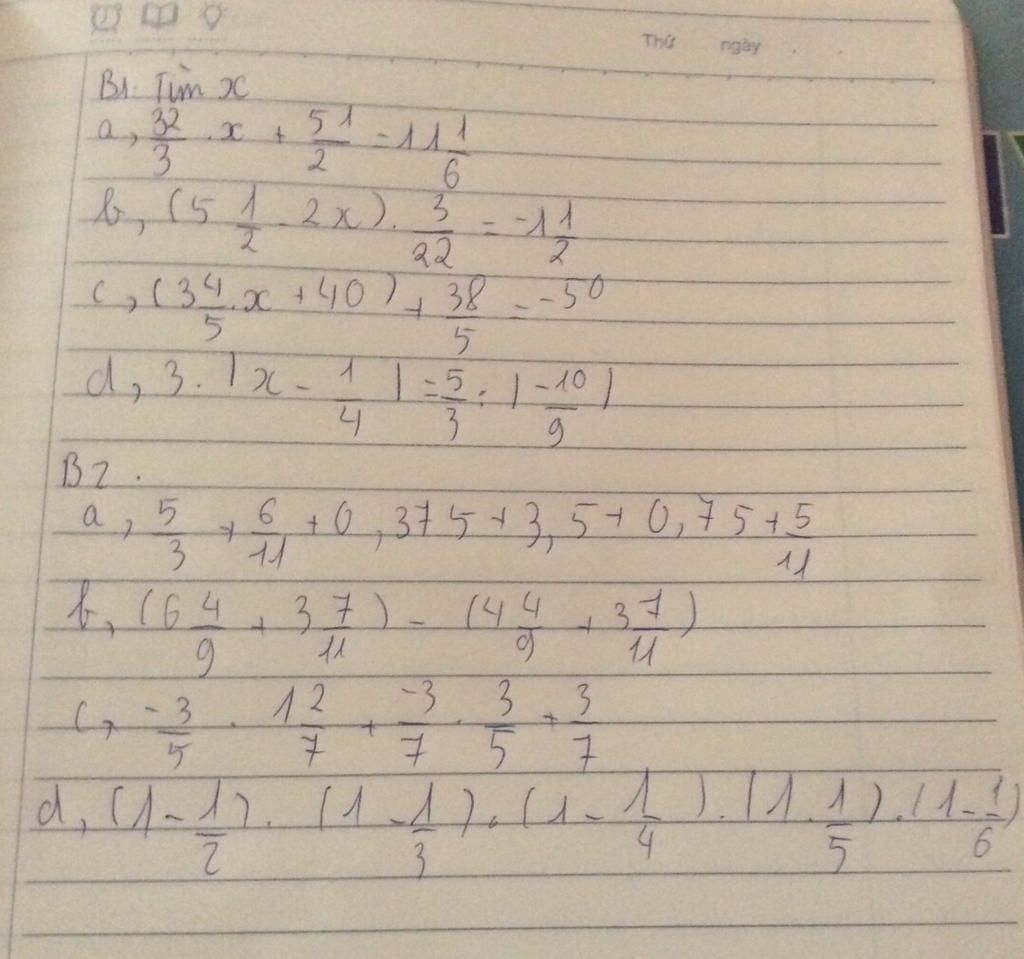 Thứ ngày
B1: Tìm x
a, 32/3 . x + 51/2 = 11 1/6
b, (5 1/2 - 2x) . 3/22 = -1 1/2
c, (3 4/5 . x + 40) + 38/5 = -50
d, 3 . |x - 1/4| = 5/3 : |-10/9|
B2.
a, 5/3 + 6/11 + 0,375 + 3,5 + 0,75 + 5/11
b, (6 4/9 + 3 7/11) - (4 4/9 + 3 7/11)
c, -3/5 . 12/7 + -3/7 . 3/5 + 3/7
d, (1 - 1/2) . (1 - 1/3) . (1 - 1/4) . (1 . 1/5) . (1 - 1/6)